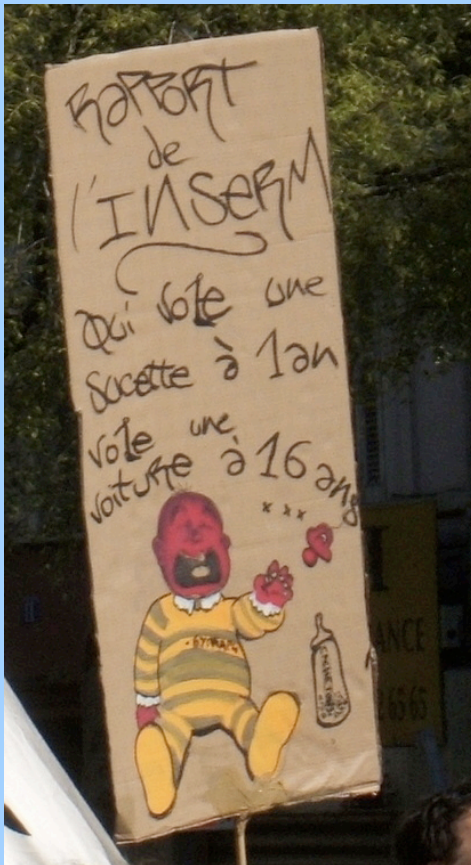 RAPPORT
de
l'INSERM
Qui vole une
sucette à 1an
vole une
voiture à 16 ans
x x x
ANCE
26565